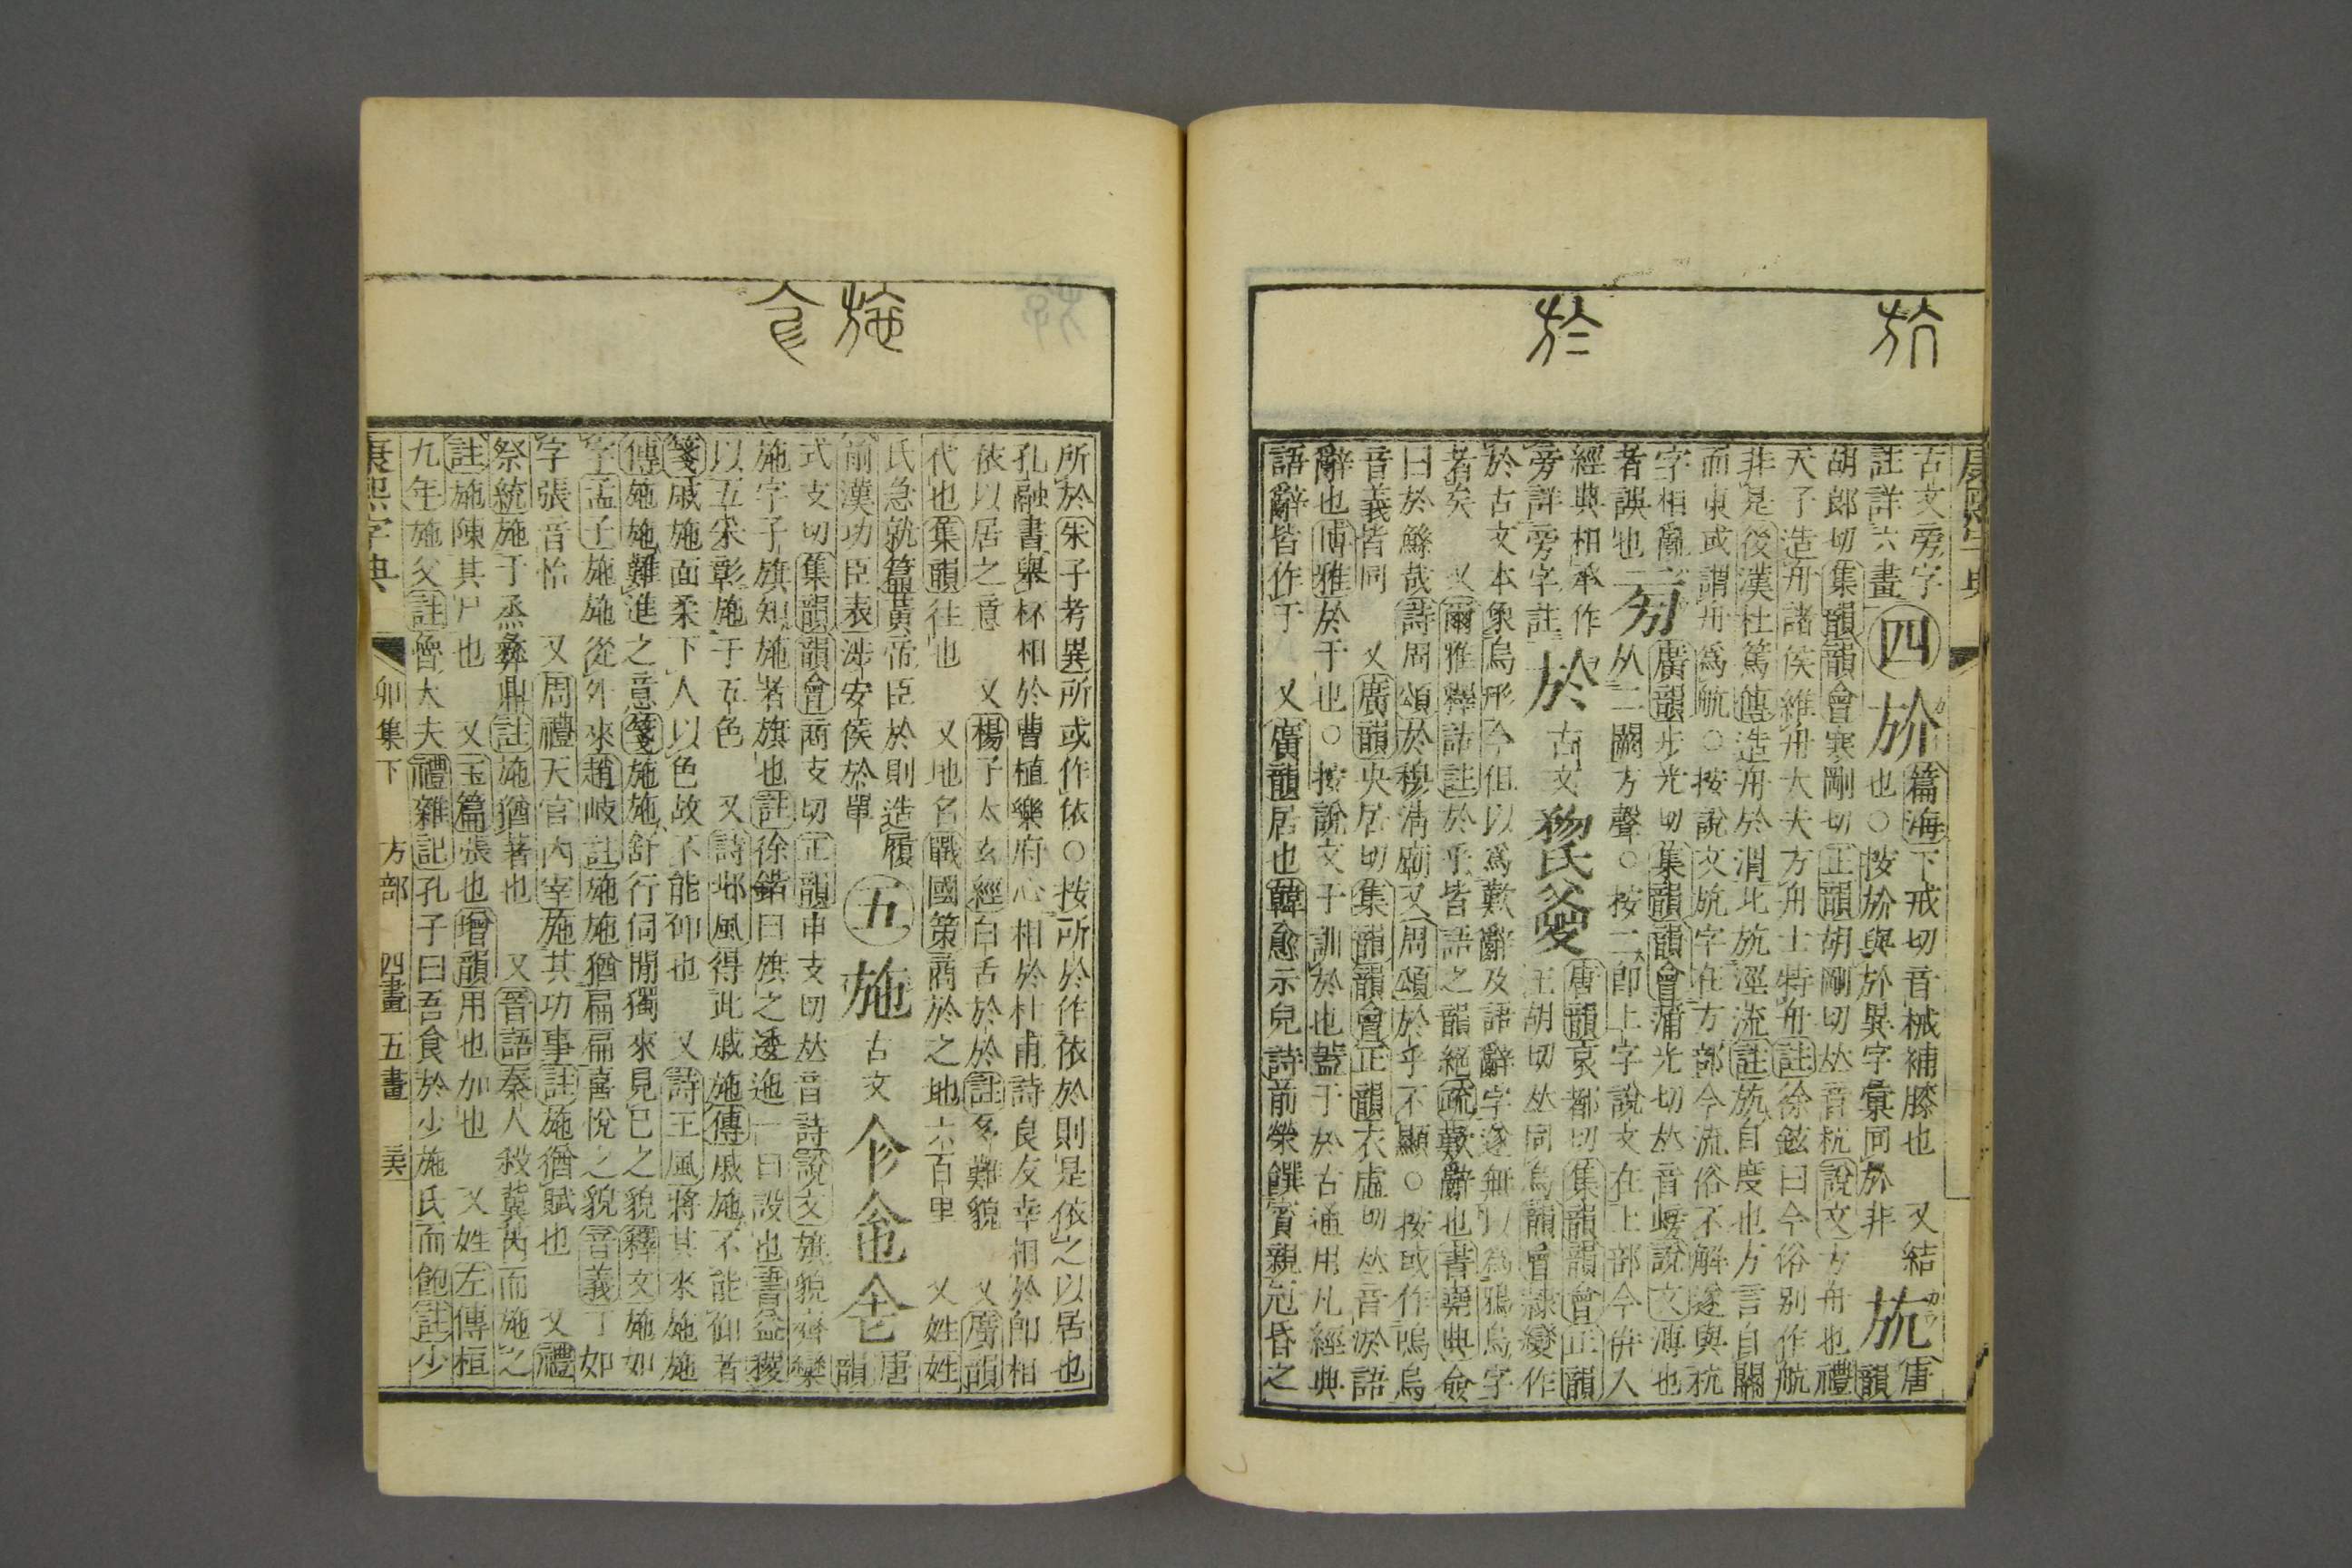 斻
於
康熙字典
古文旁字
註詳六畫
四
㫅
篇海下戒切音械補膝也 又結
也○按㫅與於異字彙同於非
斻
唐
韻
胡郎切集韻韻會寒剛切正韻胡剛切𠀤音杭說文方舟也禮
天子造舟諸侯維舟大夫方舟士特舟註徐鉉曰今俗別作航
非是後漢杜篤傳造舟於渭北斻涇流註斻自度也方言自關
而東或謂舟爲航○按說文斻字在方部今流俗不解遂與杭
字相亂
者誤也
㫄
廣韻步光切集韻韻會蒲光切𠀤音螃說文溥也
从二闕方聲○按二卽上字說文在上部今倂入
經典相承作
旁詳旁字註
於
古文
唐韻哀都切集韻韻會正韻
汪胡切𠀤同烏韻會隷變作
於古文本象烏形今但以爲歎辭及語辭字遂無以爲鴉烏字
者矣 又爾雅釋詁註於乎皆語之韻絕疏歎辭也書堯典僉
曰於鯀哉詩周頌於穆淸廟又周頌於乎不顯○按或作嗚烏
音義皆同 又廣韻央居切集韻韻會正韻衣虛切𠀤音淤語
辭也博雅於于也○按說文于訓於也蓋于於古通用凡經典
語辭皆作于 又廣韻居也韓愈示兒詩前榮饌賓親冠昏之
施
所於朱子考異所或作依○按所於作依於則是依之以居也
孔融書舉杯相於曹植樂府心相於杜甫詩良友幸相於卽相
依以居之意 又楊子太玄經白舌於於註多難貌 又廣韻
代也集韻往也 又地名戰國策商於之地六百里 又姓姓
氏急就篇黃帝臣於則造履
前漢功臣表涉安侯於單
五
施
古文
唐
韻
式支切集韻韻會商支切正韻申支切𠀤音詩說文旗貌齊欒
施字子旗知施者旗也註徐鍇曰旗之逶迤一曰設也書益稷
以五采彰施于五色 又詩邶風得此戚施傳戚施不能仰者
箋戚施面柔下人以色故不能仰也 又詩王風將其來施施
傳施施難進之意箋施施舒行伺閒獨來見己之貌釋文施如
字孟子施施從外來趙岐註施施猶扁扁喜悅之貌音義丁如
字張音怡 又周禮天官內宰施其功事註施猶賦也 又禮
祭統施于烝彝鼎註施猶著也 又晉語秦人殺冀芮而施之
註施陳其尸也 又玉篇張也增韻用也加也 又姓左傳桓
九年施父註魯大夫禮雜記孔子曰吾食於少施氏而飽註少
康熙字典 卯集下 方部 四畫 五畫